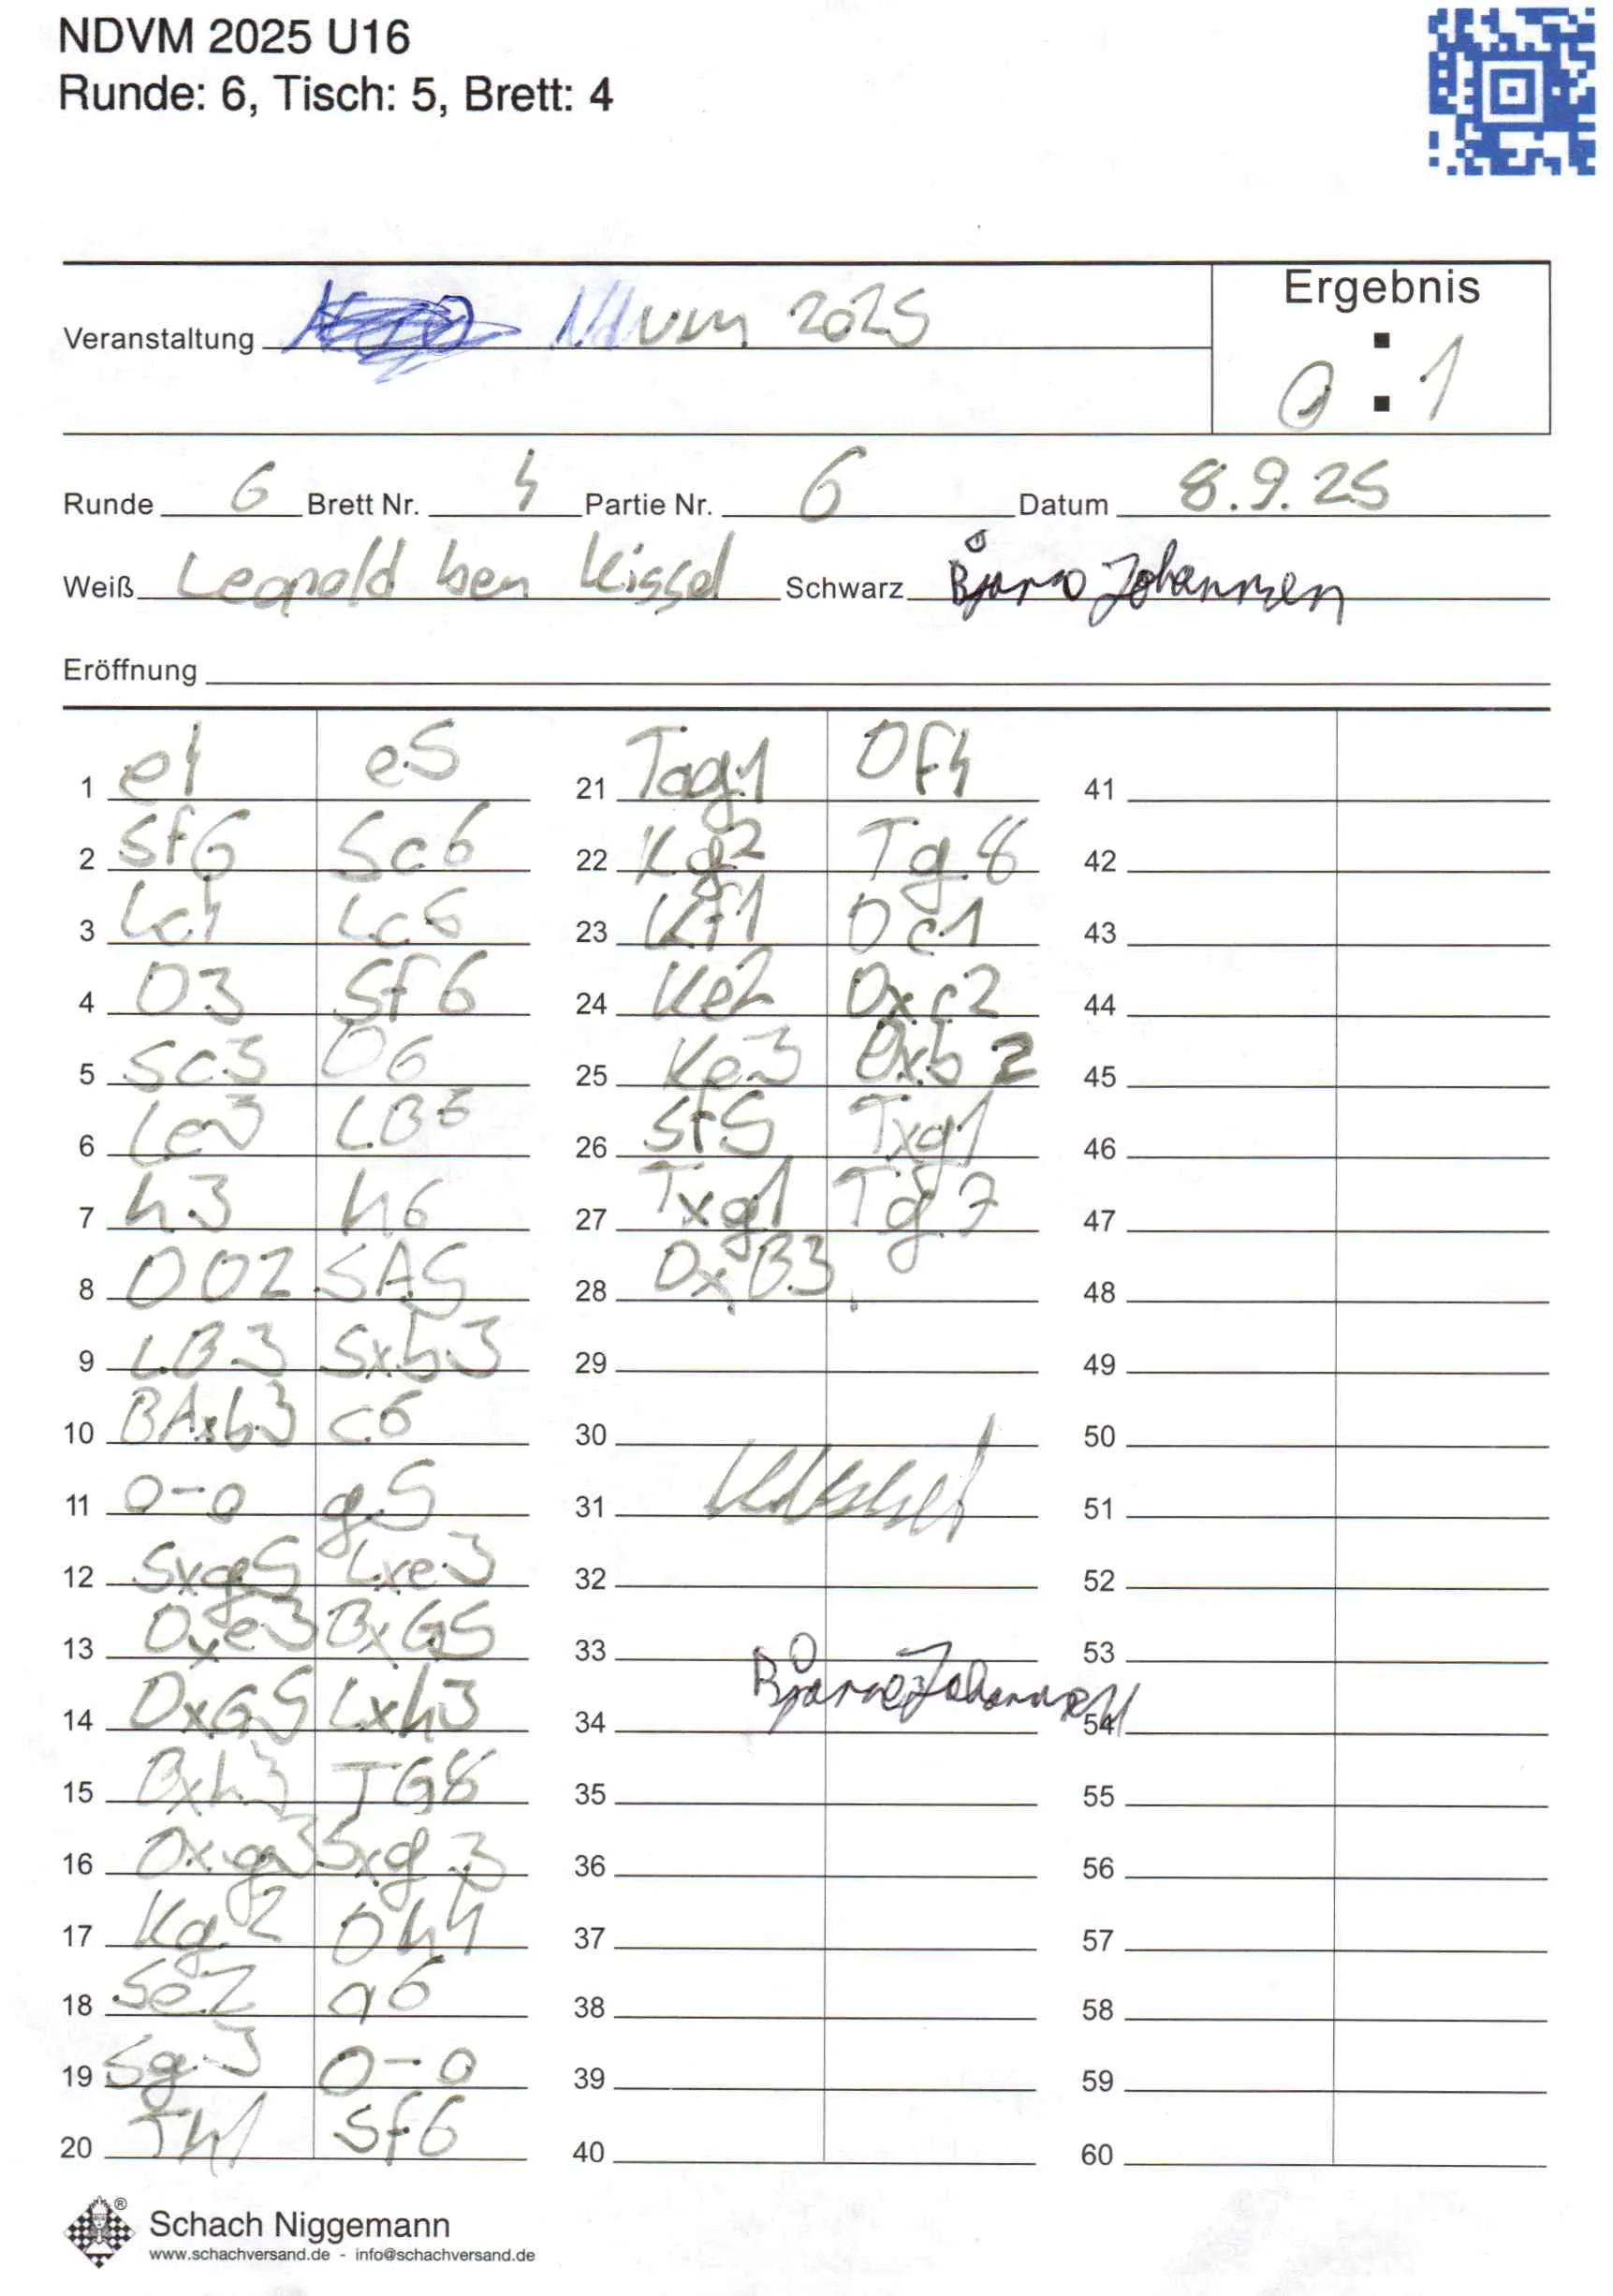 NDVM 2025 U16
Runde: 6, Tisch: 5, Brett: 4
Ergebnis
Veranstaltung Ndvm 2025
0 : 1
Runde 6 Brett Nr. 4 Partie Nr. 6 Datum 8.9.25
Weiß Leopold ben Kissel Schwarz Bjarne Johannsen
Eröffnung
1 e4 e5 21 Tag1 Df4 41
2 Sf6 Sc6 22 Kg2 Tg8 42
3 Lc4 Lc5 23 Kf1 Dc1 43
4 D3 Sf6 24 Ke2 Dxc2 44
5 Sc3 D6 25 Ke3 Dxb2 45
6 Le3 LB6 26 Sf5 Txg1 46
7 h3 h6 27 Txg1 Tg7 47
8 DD2 SA5 28 DxB3 48
9 LB3 Sxb3 29 49
10 BAxb3 c6 30 50
11 0-0 g5 31 51
12 Sxg5 Lxe3 32 52
13 Dxe3 BxG5 33 53
14 DxG5 Lxh3 34 Bjarne Johannsen 54
15 Bxh3 TG8 35 55
16 Dxg3 Sxg3 36 56
17 Kg2 Dh4 37 57
18 Se2 a6 38 58
19 Sg3 0-0 39 59
20 Th1 Sf6 40 60
Schach Niggemann
www.schachversand.de - info@schachversand.de